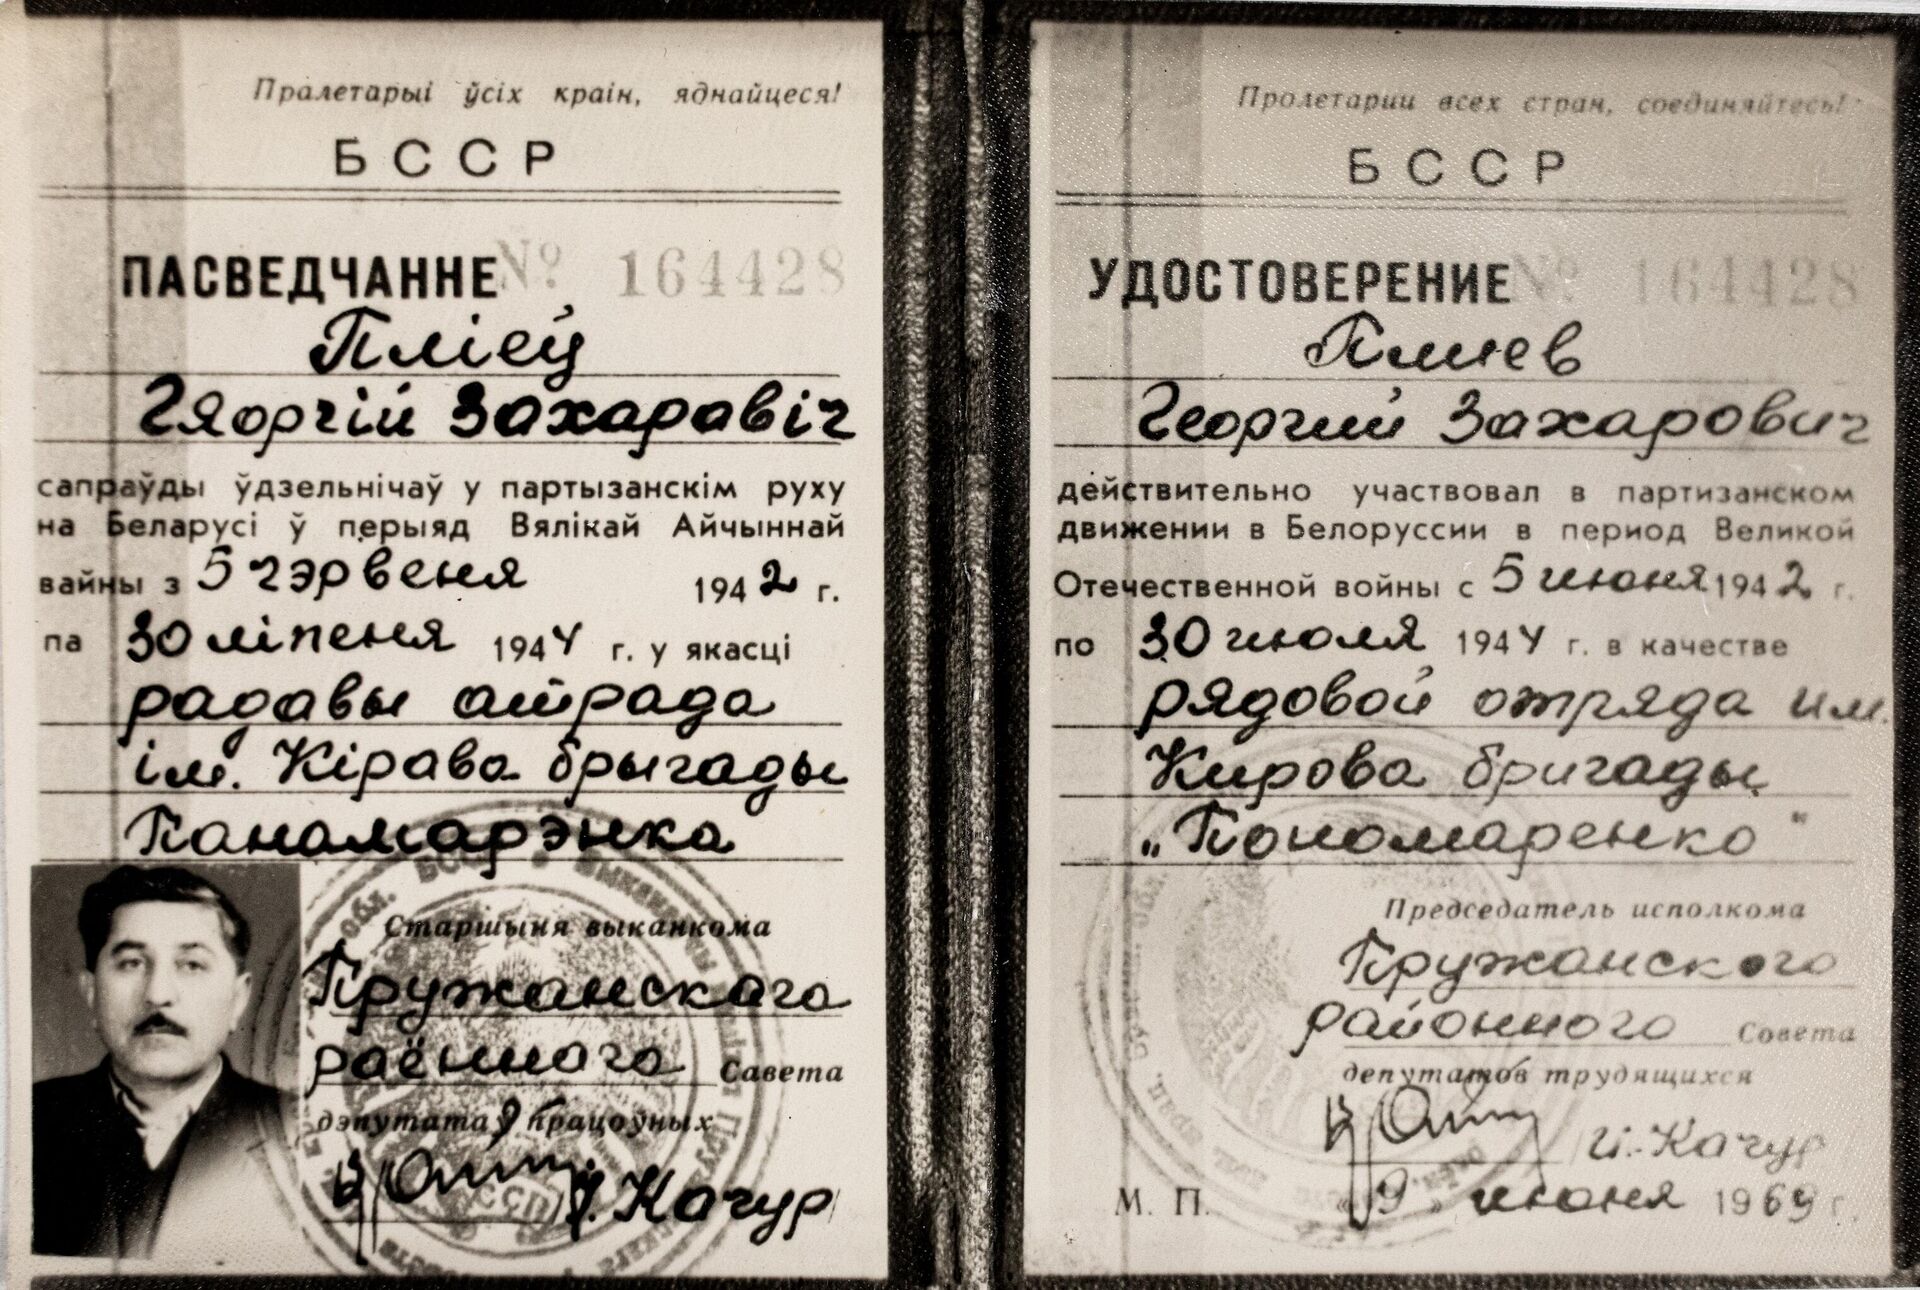 Пралетарыі ўсіх краін, яднайцеся!
БССР
ПАСВЕДЧАННЕ № 164428
Пліеў
Гяоргій Захаравіч
сапраўды ўдзельнічаў у партызанскім руху
на Беларусі ў перыяд Вялікай Айчыннай
вайны з 5 чэрвеня 1942 г.
па 30 ліпеня 1944 г. у якасці
радавы атрада
ім. Кірава брыгады
Панамарэнка
Старшыня выканкома
Пружанскага
раённага Савета
дэпутатаў працоўных
Качур
Пролетарии всех стран, соединяйтесь!
БССР
УДОСТОВЕРЕНИЕ № 164428
Плиев
Георгий Захарович
действительно участвовал в партизанском
движении в Белоруссии в период Великой
Отечественной войны с 5 июня 1942 г.
по 30 июля 1944 г. в качестве
рядовой отряда им.
Кирова бригады
„Пономаренко"
Председатель исполкома
Пружанского
районного Совета
депутатов трудящихся
Качур
М. П. «9» июня 1969 г.